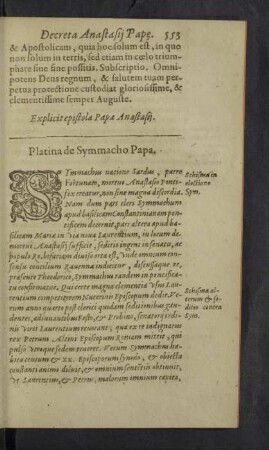 Decreta Anastasij Papę. 553
& Apostolicam, quia hoc solum est, in quo
non solum in terris, sed etiam in cœlo trium-
phare sine fine possitis. Subscriptio. Omni-
potens Deus regnum, & salutem tuam per-
petua protectione custodiat gloriosissime, &
clementissime semper Auguste.
Explicit epistola Papa Anastasij.
Platina de Symmacho Papa.
SYmmachus natione Sardus, patre
Fortunato, mortuo Anastasio Ponti-
fex creatur, non sine magna discordia.
Nam dum pars cleri Symmachum
apud basilicam Constantinianam pon-
tificem decernit, pars altera apud ba-
silicam Mariæ in Via noua Laurentium, in locum de-
mortui Anastasij sufficit, seditis ingens in senatu, ac
populo Rn. bifariam diuiso orta est, Vnde omnium con-
sensu concilium Rauennæ indicitur, discussaque re,
præsente Theodorico, Symmachus tandem in pontifica-
tu confirmatur. Qui certe magna clementia Vsus Lau-
rentium competitorem Nucerinæ Episcopum dedit. Ve-
rum anno quarto post clerici quidam seditionibus gau-
dentes, adiuuantibus Festo, & Probino, senatorij ordi-
nis Viris Laurentium reuocant, qua ex re indignatus
rex Petrum Altini Episcopum Romam mittit, qui
pulso Vtroque sedem teneret. Verum Symmachus ha-
bita centum & XX. Episcoporum synodo, & obiecta
constanti animo diluit, & omnium sententijs obtinuit,
Vt Laurentius, & Petrus, malorum omnium capita,
Schisma in
electione
Sym.
Schisma al-
terum & se-
ditio contra
Sym.